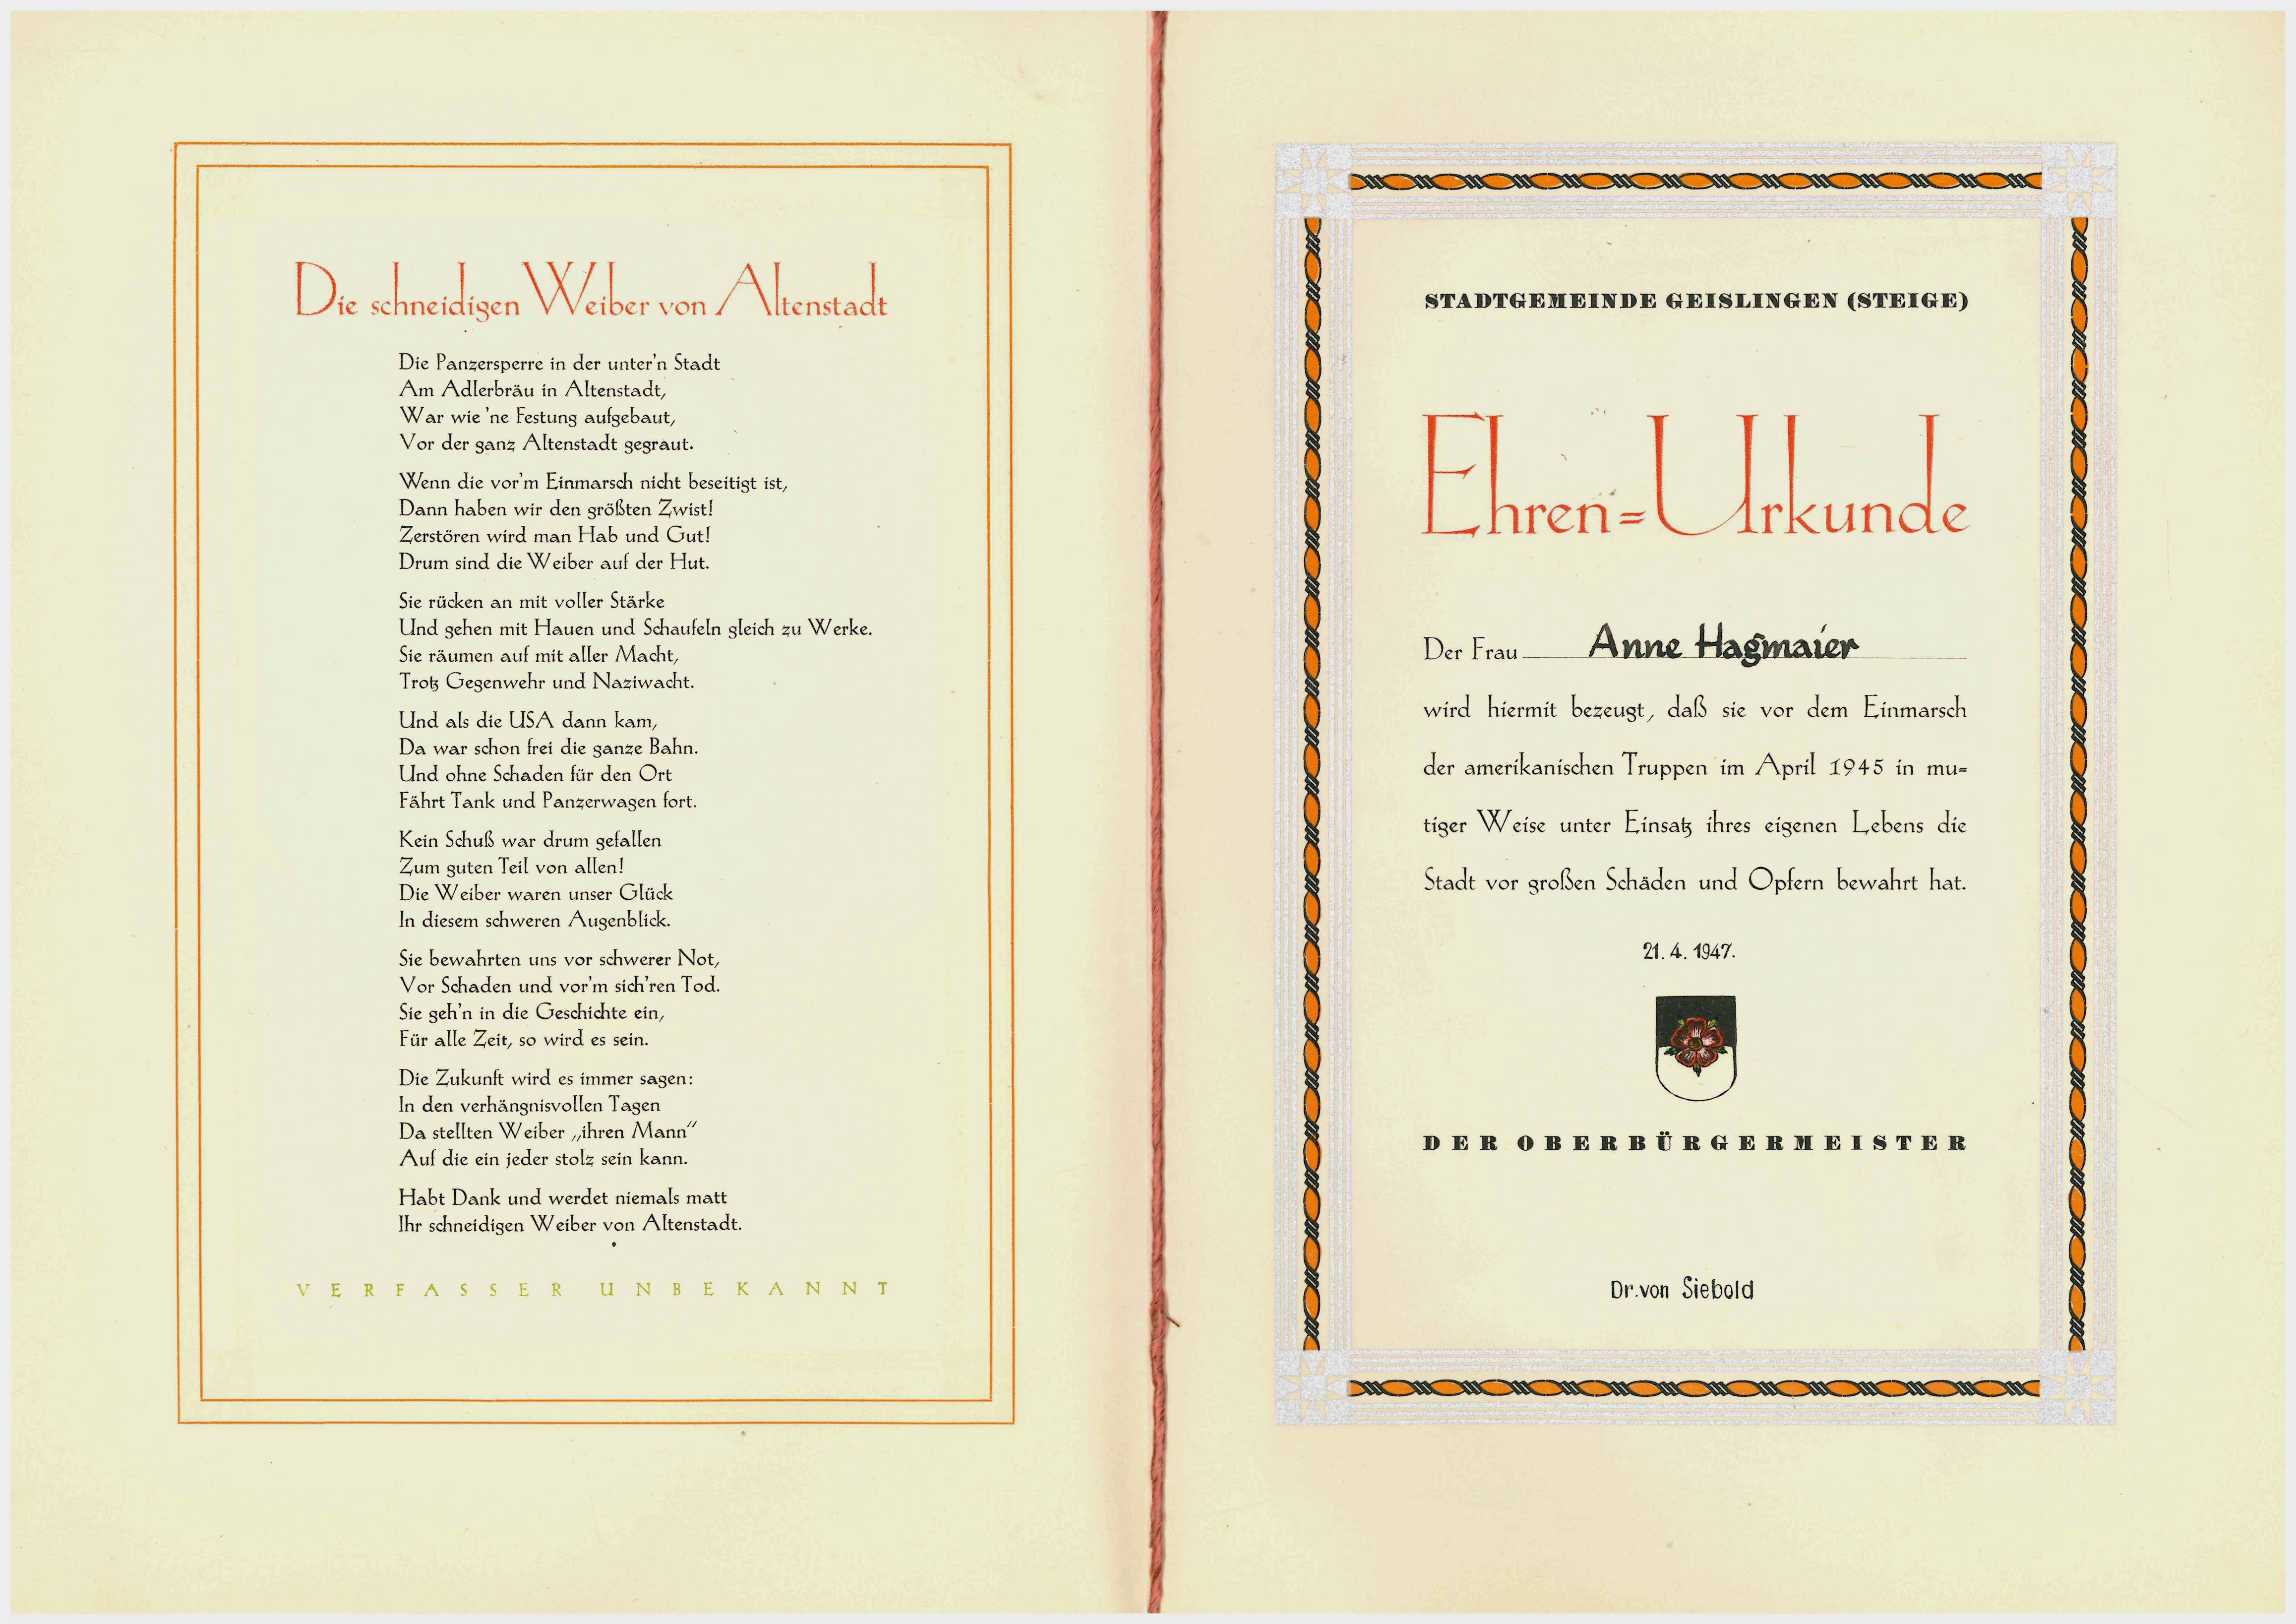 Die schneidigen Weiber von Altenstadt
Die Panzersperre in der unter'n Stadt
Am Adlerbräu in Altenstadt,
War wie 'ne Festung aufgebaut,
Vor der ganz Altenstadt gegraut.
Wenn die vor'm Einmarsch nicht beseitigt ist,
Dann haben wir den größten Zwist!
Zerstören wird man Hab und Gut!
Drum sind die Weiber auf der Hut.
Sie rücken an mit voller Stärke
Und gehen mit Hauen und Schaufeln gleich zu Werke.
Sie räumen auf mit aller Macht,
Trotz Gegenwehr und Naziwacht.
Und als die USA dann kam,
Da war schon frei die ganze Bahn.
Und ohne Schaden für den Ort
Fährt Tank und Panzerwagen fort.
Kein Schuß war drum gefallen
Zum guten Teil von allen!
Die Weiber waren unser Glück
In diesem schweren Augenblick.
Sie bewahrten uns vor schwerer Not,
Vor Schaden und vor'm sich'ren Tod.
Sie geh'n in die Geschichte ein,
Für alle Zeit, so wird es sein.
Die Zukunft wird es immer sagen:
In den verhängnisvollen Tagen
Da stellten Weiber „ihren Mann"
Auf die ein jeder stolz sein kann.
Habt Dank und werdet niemals matt
Ihr schneidigen Weiber von Altenstadt.
VERFASSER UNBEKANNT
STADTGEMEINDE GEISLINGEN (STEIGE)
Ehren=Urkunde
Der Frau Anne Hagmaier
wird hiermit bezeugt, daß sie vor dem Einmarsch
der amerikanischen Truppen im April 1945 in mu=
tiger Weise unter Einsatz ihres eigenen Lebens die
Stadt vor großen Schäden und Opfern bewahrt hat.
21. 4. 1947.
DER OBERBÜRGERMEISTER
Dr. von Siebold